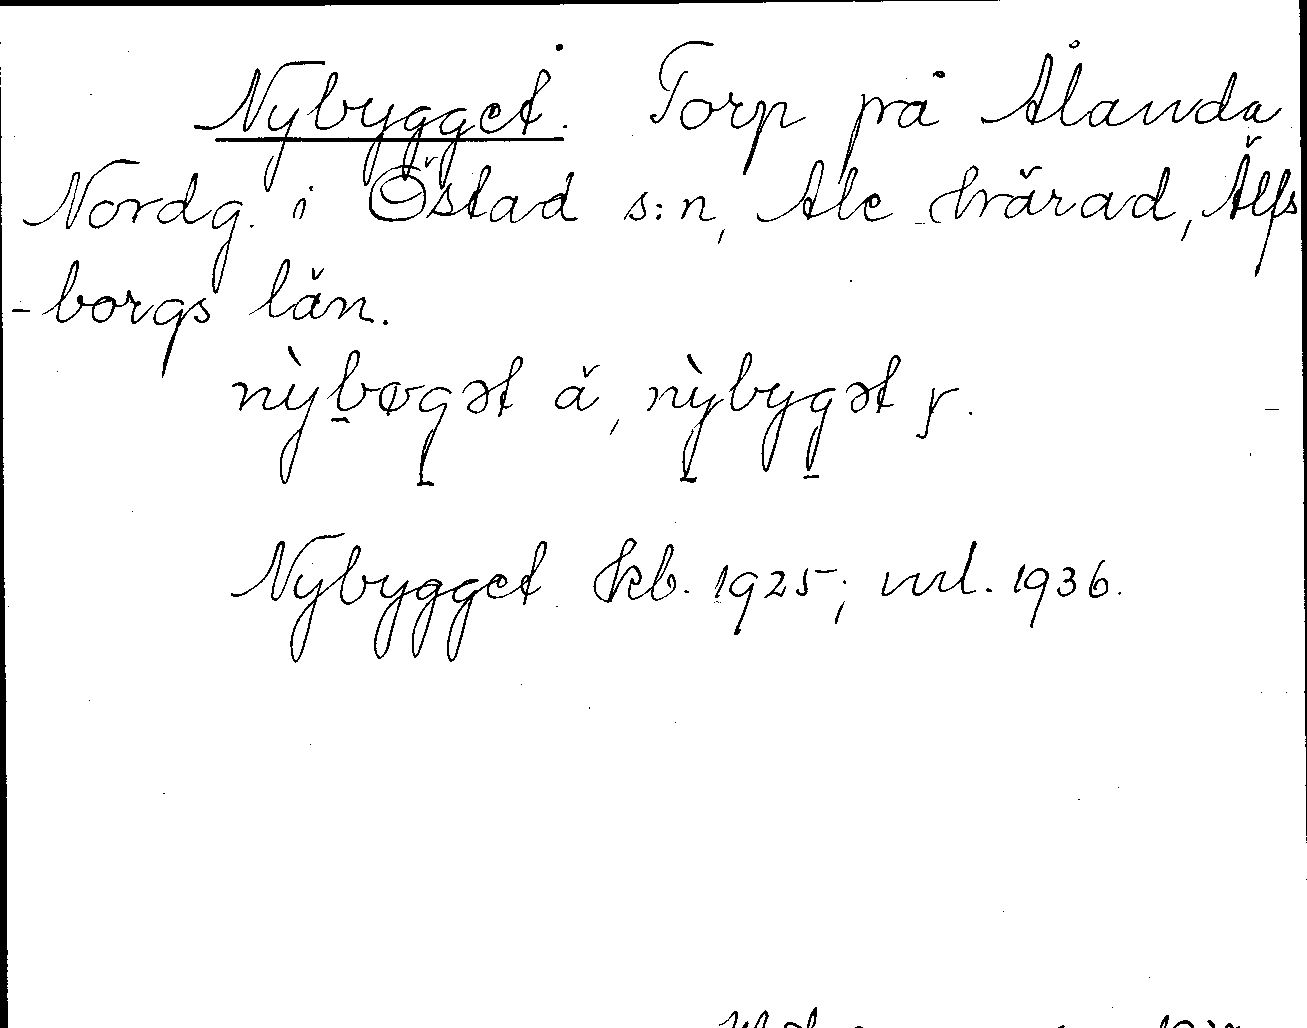 Nybygget. Torp på Ålanda
Nordg. i Östad s:n, Ale härad, Älfs
-borgs län.
nỳbøgət ä, nỳbygət y.
Nybygget kb. 1925; vul. 1936.